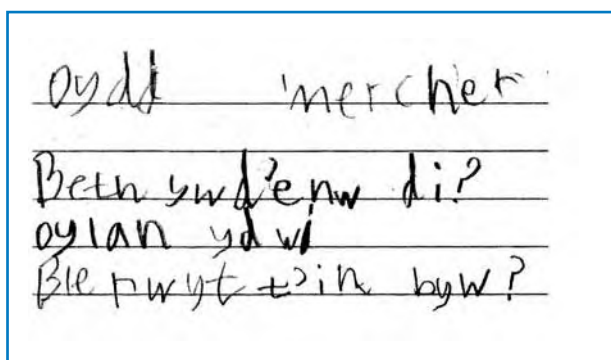 Dydd mercher
Beth ywd'enw di?
Dylan ydwi
Ble rwyt t'in byw?